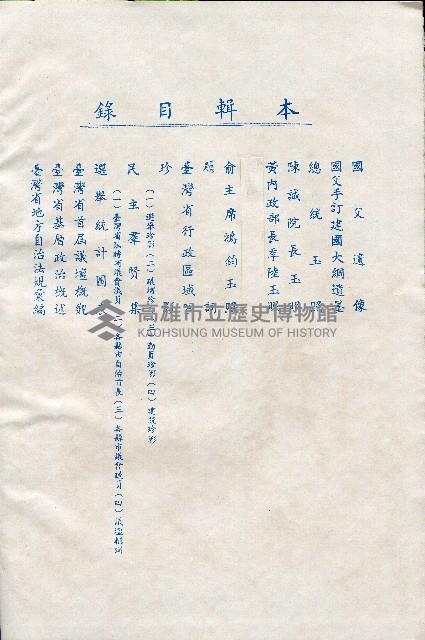 本輯目錄
國父遺像
國父手訂建國大綱遺墨
總統玉照
陳誠院長玉照
黃內政部長季陸玉照
俞主席鴻鈞玉照
題詞
臺灣省行政區域圖
珍影
(一)選舉珍影(二)議壇珍影(三)勤員珍影(四)建設珍影
民主羣賢集
(一)臺灣省臨時省議會議員(二)各縣市自治首長(三)各縣市議會議員(四)
選舉統計圖
臺灣省首屆議壇概況
臺灣省基層政治概述
臺灣省地方自治法規彙編
高雄市立歷史博物館
KAOHSIUNG MUSEUM OF HISTORY